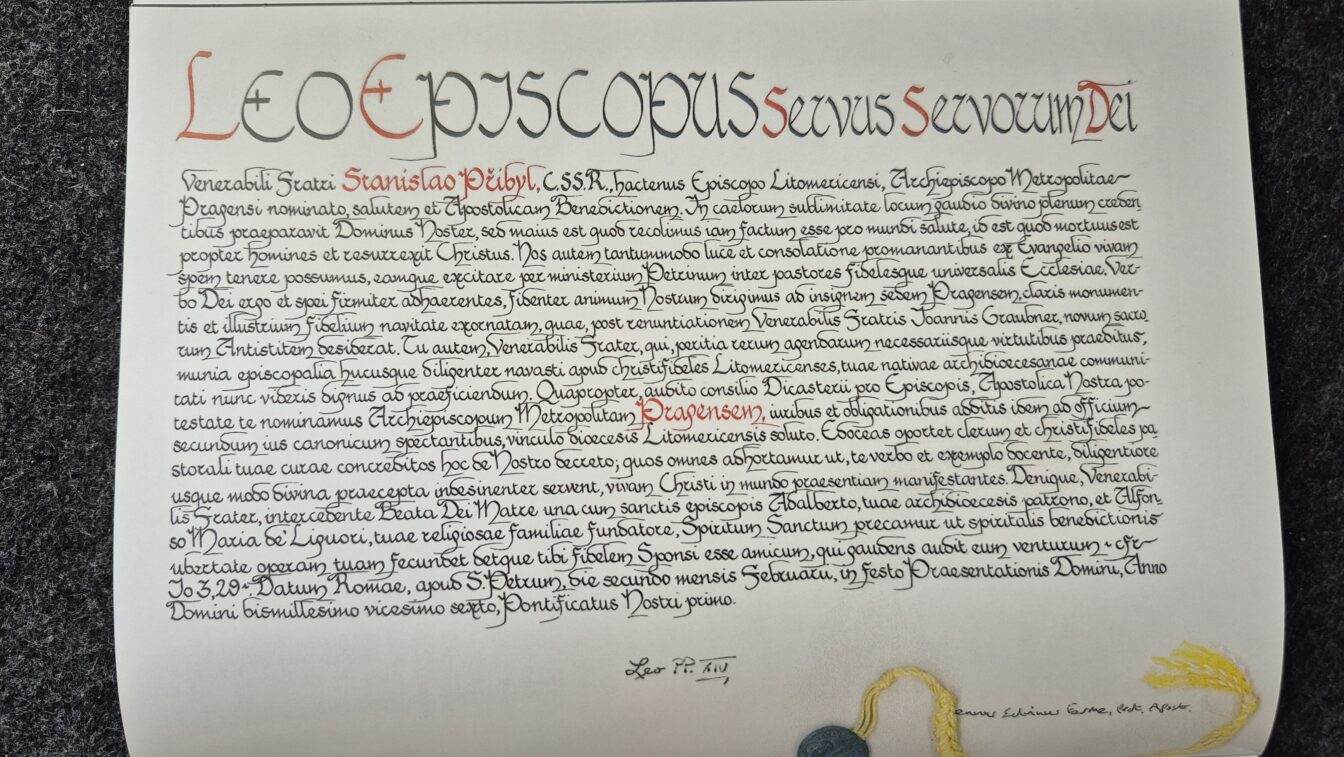 Leo Episcopus Servus Servorum Dei
Venerabili Fratri Stanislao Přibyl, C.SS.R., hactenus Episcopo Litomericensi, Archiepiscopo Metropolitae
Pragensi nominato, salutem et Apostolicam Benedictionem. In caelorum sublimitate locum gaudio divino plenum creden-
tibus praeparavit Dominus Noster, sed maius est quod recolimus iam factum esse pro mundi salute, id est quod mortuus est
propter homines et resurrexit Christus. Nos autem tantummodo luce et consolatione promanantibus ex Evangelio vivam
spem tenere possumus, eamque excitare per ministerium Petrinum inter pastores fidelesque universalis Ecclesiae. Ver-
bo Dei ergo et spei firmiter adhaerentes, fidenter animum Nostrum dirigimus ad insignem sedem Pragensem, claris monumen-
tis et illustrium fidelium navitate exornatam, quae, post renuntiationem Venerabilis Fratris Ioannis Graubner, novum sacro-
rum Antistitem desiderat. Tu autem, Venerabilis Frater, qui, peritia rerum agendarum necessariisque virtutibus praeditus,
munia episcopalia hucusque diligenter navasti apud christifideles Litomericenses, tuae nativae archidioecesanae communi-
tati nunc videris dignus ad praeficiendum. Quapropter, audito consilio Dicasterii pro Episcopis, Apostolica Nostra po-
testate te nominamus Archiepiscopum Metropolitam Pragensem, iuribus et obligationibus additis idem ad officium
secundum ius canonicum spectantibus, vinculo dioecesis Litomericensis soluto. Edoceas oportet clerum et christifideles pa-
storali tuae curae concreditos hoc de Nostro decreto; quos omnes adhortamur ut, te verbo et exemplo docente, diligentiore
usque modo divina praecepta indesinenter servent, vivam Christi in mundo praesentiam manifestantes. Denique, Venerabi-
lis Frater, intercedente Beata Dei Matre una cum sanctis episcopis Adalberto, tuae archidioecesis patrono, et Alfon-
so Maria de' Liguori, tuae religiosae familiae fundatore, Spiritum Sanctum precamur ut spiritalis benedictionis
ubertate operam tuam fecundet detque tibi fidelem Sponsi esse amicum, qui gaudens audit eum venturum - cfr
Io 3, 29 -. Datum Romae, apud S. Petrum, die secundo mensis Februarii, in festo Praesentationis Domini, Anno
Domini bismillesimo vicesimo sexto, Pontificatus Nostri primo.
Leo PP. XIV
Prot. Apost.